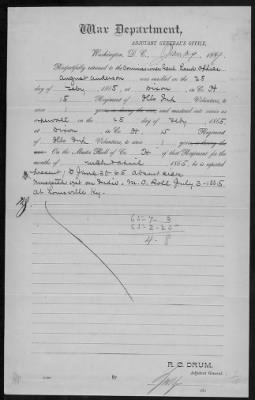 War Department,
ADJUTANT GENERAL'S OFFICE,
Washington, D. C.,
Respectfully returned to the Commissioner Genl Land Office
August Anderson was enrolled on the 25
day of Feby, 1865, at Dixon, in Co. H
15 Regiment of Ills Inf Volunteers, to
serve and mustered into service as
on the 25 day of Feby 1865
at Dixon, in Co. H, 15 Regiment
of Ills Inf Volunteers, to
On the Muster Roll of Co. H of that Regiment for the
months of March & April 1865, he is reported
present; June 30-65 absent sick
Mustered out on M. O. Roll July 3-1865
at Louisville Ky.
65-7-3
65-2-25
4-8
R. C. DRUM,
Adjutant General.